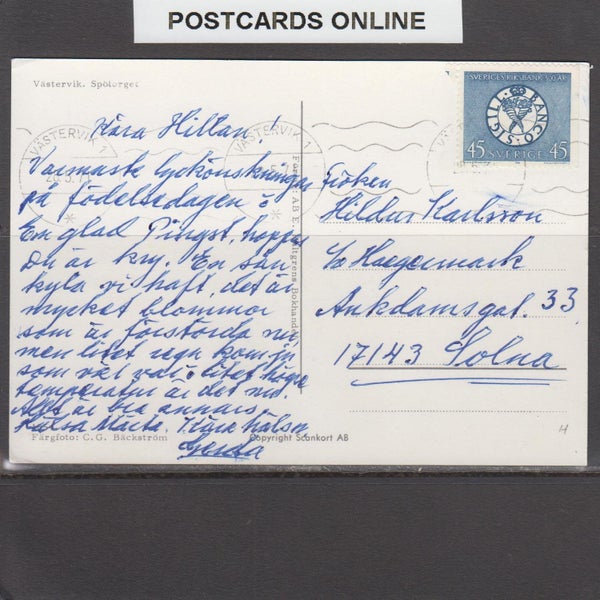 POSTCARDS ONLINE
Västervik. Spötorget
SVERIGES RIKSBANK 300 ÅR
BANCO S.G.I.L.L.
45 SVERIGE 45
VÄSTERVIK 1
VÄSTERVIK 1
VÄSTERVIK 1
Kära Hillan!
Varmaste lyckönskningar
på födelsedagen o
En glad Pingst, hoppas
Du är kry. En sån
kyla vi haft, det är
mycket blommor
som är förstörda nu
men litet regn kom ju
som väl var, litet högre
temperatur är det nu.
Allt är bra annars,
Hälsa Märta. Kära hälsn
Gerda
Fröken
Hildur Karlsson
c/o Haegermark
Ankdamsgat. 33
17143 Solna
Färgfoto: C.G. Bäckström
Copyright Scankort AB
H